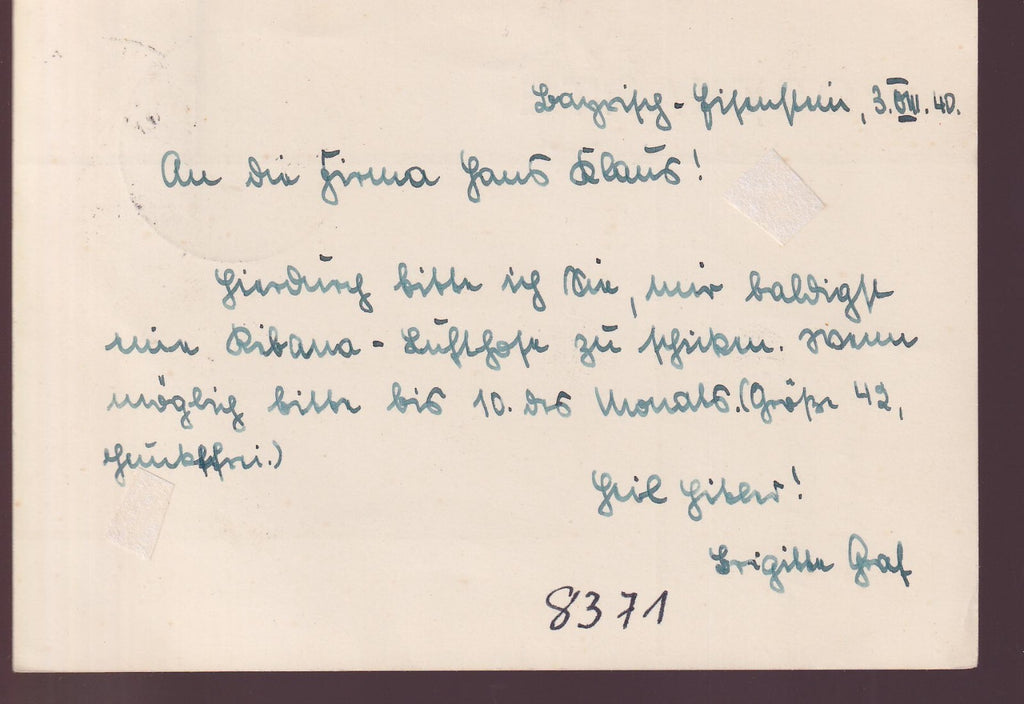 Bayrisch-Eisenstein, 3.VIII.40.
An die Firma Hans Klaus!
Hierdurch bitte ich Sie, mir baldigst
eine Ribana-Lufthose zu schicken. Wenn
möglich bitte bis 10. des Monats. (Größe 42,
punktfrei.)
Heil Hitler!
Brigitte Graf
8371